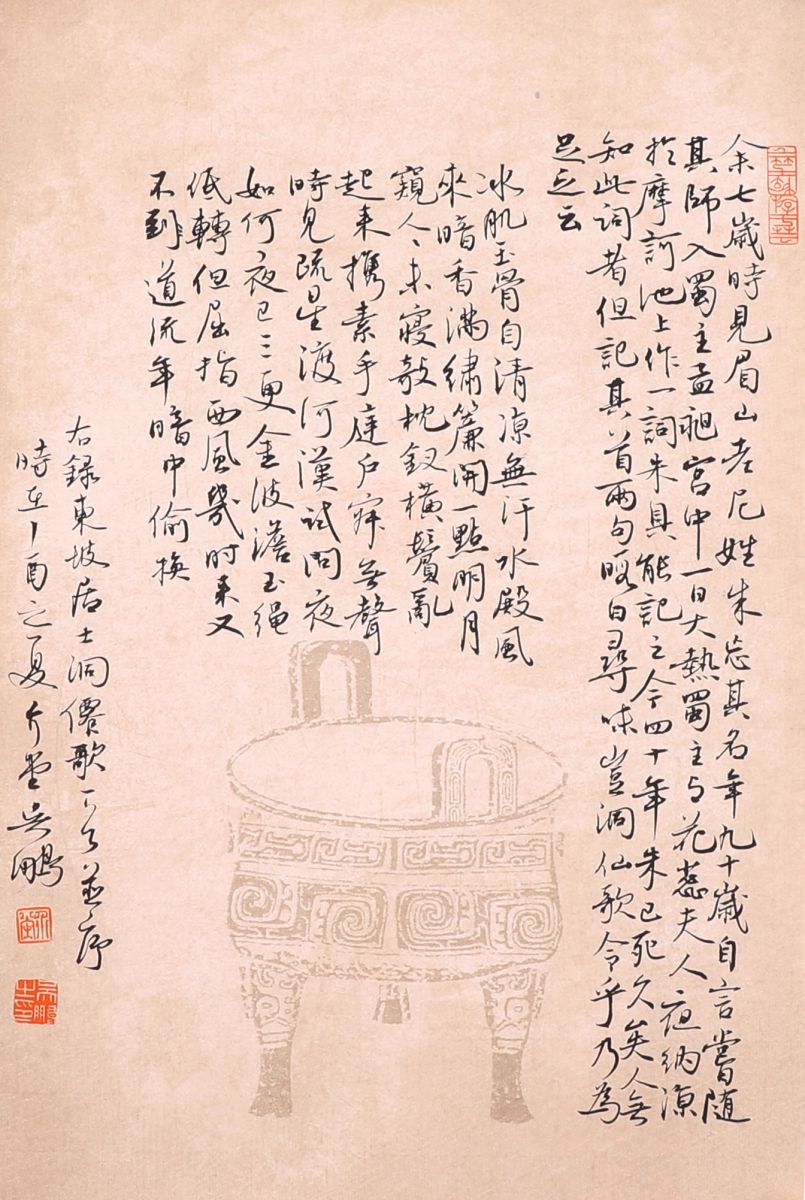 余七歲時見眉山老尼姓朱忘其名年九十歲自言嘗隨
其師入蜀主孟昶宮中一日大熱蜀主与花蕊夫人夜納涼
於摩訶池上作一詞朱具能記之今四十年朱已死久矣人無
知此詞者但記其首兩句暇日尋味豈洞仙歌令乎乃為
足之云
冰肌玉骨自清涼無汗水殿風
來暗香滿繡簾開一點明月
窺人〻未寢敧枕釵橫鬢亂
起來攜素手庭戶寂無聲
時見疏星渡河漢試問夜
如何夜已三更金波澹玉繩
低轉但屈指西風幾時來又
不到道流年暗中偷換
右錄東坡居士洞僊歌一首並序
時在丁酉之夏介堂吳鵬